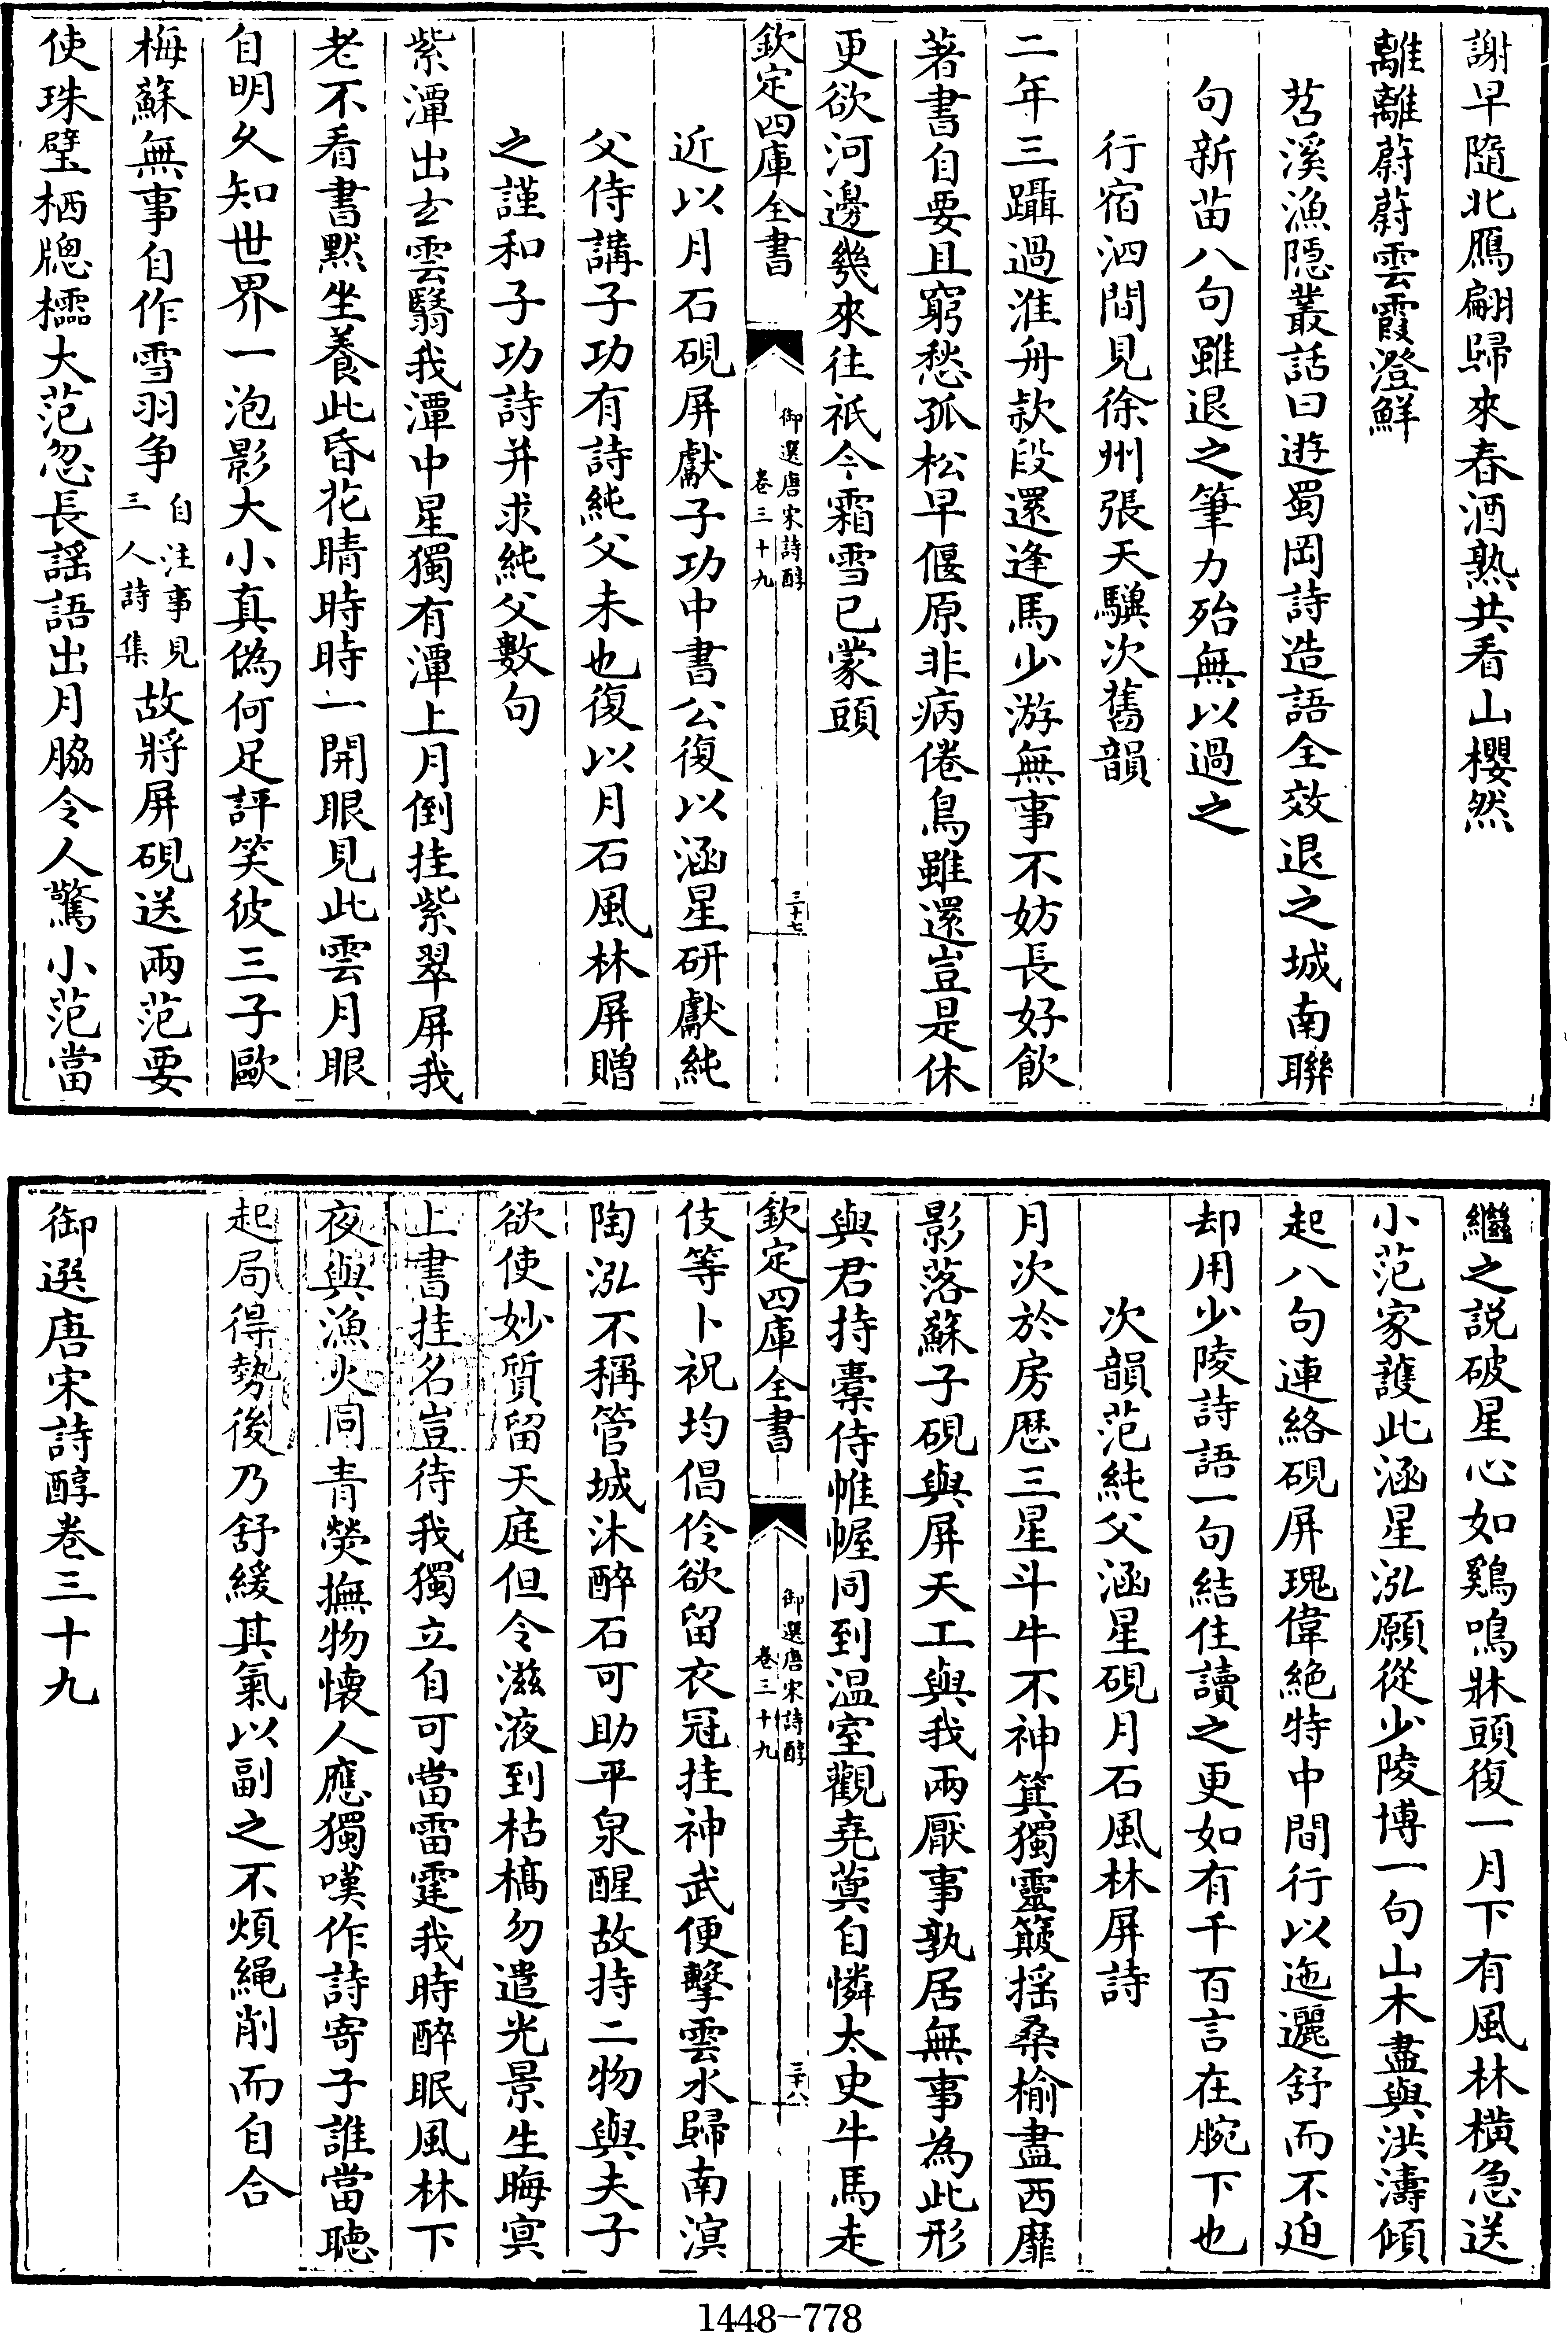 謝早隨北鴈翩歸來春酒熟共看山櫻然
離離蔚蔚雲霞澄鮮
苕溪漁隱叢話曰遊蜀岡詩造語全效退之城南聯
句新苗八句雖退之筆力殆無以過之
行宿泗間見徐州張天驥次舊韻
二年三躡過淮舟款段還逢馬少游無事不妨長好飲
著書自要且窮愁孤松早偃原非病倦鳥雖還豈是休
更欲河邊幾來往祇今霜雪已蒙頭
欽定四庫全書
御選唐宋詩醇
卷三十九
三十七
近以月石硯屏獻子功中書公復以涵星研獻純
父侍講子功有詩純父未也復以月石風林屏贈
之謹和子功詩并求純父數句
紫潭出玄雲翳我潭中星獨有潭上月倒挂紫翠屏我
老不看書默坐養此昏花睛時時一開眼見此雲月眼
自明久知世界一泡影大小真偽何足評笑彼三子歐
梅蘇無事自作雪羽争自注事見三人詩集故將屏硯送兩范要
使珠璧栖牕櫺大范忽長謡語出月脇令人驚小范當
繼之説破星心如鷄鳴牀頭復一月下有風林横急送
小范家護此涵星泓願從少陵博一句山木盡與洪濤傾
起八句連絡硯屏瑰偉絶特中間行以迤邐舒而不迫
却用少陵詩語一句結住讀之更如有千百言在腕下也
次韻范純父涵星硯月石風林屏詩
月次於房歴三星斗牛不神箕獨靈簸揺桑榆盡西靡
影落蘇子硯與屏天工與我兩厭事孰居無事為此形
與君持橐侍帷幄同到温室觀堯蓂自憐太史牛馬走
欽定四庫全書
御選唐宋詩醇
卷三十九
三十八
伎等卜祝均倡伶欲留衣冠挂神武便擊雲水歸南溟
陶泓不稱管城沐醉石可助平泉醒故持二物與夫子
欲使妙質留天庭但令滋液到枯槁勿遣光景生晦冥
上書挂名豈待我獨立自可當雷霆我時醉眠風林下
夜與漁火同青熒撫物懐人應獨嘆作詩寄子誰當聴
起局得勢後乃舒緩其氣以副之不煩繩削而自合
御選唐宋詩醇卷三十九
1448-778